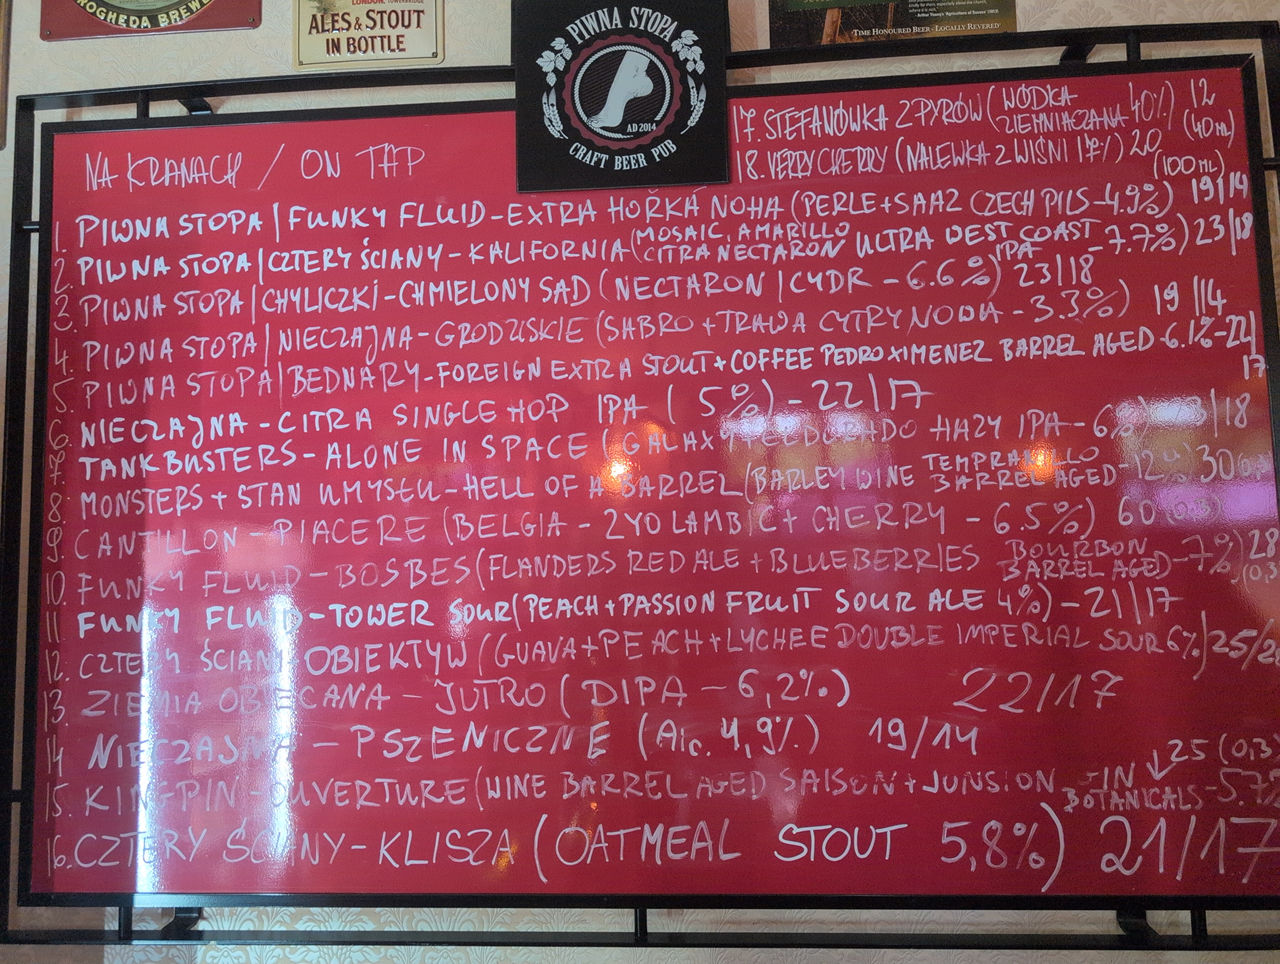 ROGHEDA BREWE
LONDON, TOWERBRIDGE
ALES & STOUT
IN BOTTLE
PIWNA STOPA
AD 2014
CRAFT BEER PUB
"TIME HONOURED BEER - LOCALLY REVERED"
NA KRANACH / ON TAP
17. STEFANÓWKA Z PYRÓW (WÓDKA ZIEMNIACZANA 40%) 12 (40ML)
18. VERRY CHERRY (NALEWKA Z WIŚNI 17%) 20 (100 ML)
1. PIWNA STOPA | FUNKY FLUID - EXTRA HOŘKÁ NOHA (PERLE + SAAZ CZECH PILS - 4.9%) 19/14
2. PIWNA STOPA | CZTERY ŚCIANY - KALIFORNIA (MOSAIC, AMARILLO CITRA NECTARON ULTRA WEST COAST IPA - 7.7%) 23/18
3. PIWNA STOPA | CHYLICZKI - CHMIELONY SAD (NECTARON | CYDR - 6.6%) 23|18
4. PIWNA STOPA | NIECZAJNA - GRODZISKIE (SABRO + TRAWA CYTRYNOWA - 3.3%) 19/14
5. PIWNA STOPA | BEDNARY - FOREIGN EXTRA STOUT + COFFEE PEDRO XIMENEZ BARREL AGED - 6.1% - 22/17
6. NIECZAJNA - CITRA SINGLE HOP IPA (5%) - 22/17
7. TANKBUSTERS - ALONE IN SPACE (GALAXY + ELDORADO HAZY IPA - 6%) 23/18
8. MONSTERS + STAN UMYSŁU - HELL OF A BARREL (BARLEY WINE TEMPRANILLO BARREL AGED - 12%) 30
9. CANTILLON - PIACERE (BELGIA - 2YO LAMBIC + CHERRY - 6.5%) 60 (0.3)
10. FUNKY FLUID - BOSBES (FLANDERS RED ALE + BLUEBERRIES BOURBON BARREL AGED - 7%) 28 (0,3
11. FUNKY FLUID - TOWER SOUR (PEACH + PASSION FRUIT SOUR ALE 4%) - 21/17
12. CZTERY ŚCIANY OBIEKTYW (GUAVA + PEACH + LYCHEE DOUBLE IMPERIAL SOUR 6%) 25/2
13. ZIEMIA OBIECANA - JUTRO (DIPA - 6,2%) 22/17
14 NIECZAJNA - PSZENICZNE (Alc. 4,9%) 19/14
15. KINGPIN - OUVERTURE (WINE BARREL AGED SAISON + JUNSION GIN BOTANICALS - 5.7% 25 (0,3
16. CZTERY ŚCIANY - KLISZA (OATMEAL STOUT 5,8%) 21/17